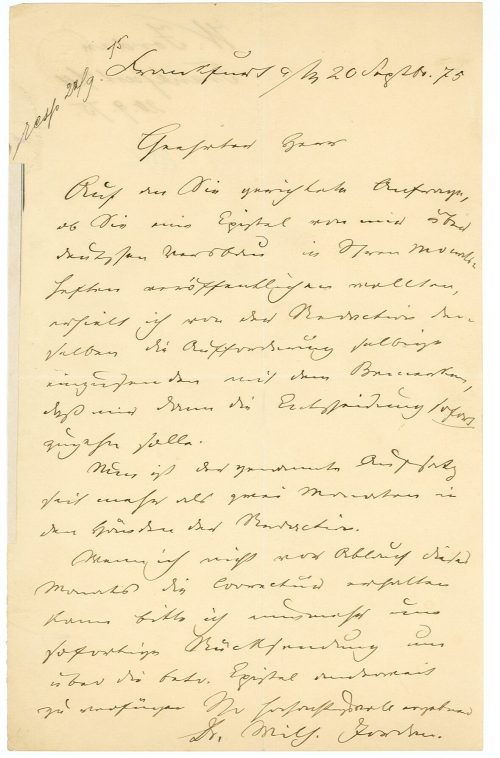 resp 22/9. 75
Frankfurt a/M 20 Septbr. 75
Geehrter Herr
Auf an Sie gerichtete Anfrage,
ob Sie eine Epistel von mir über
deutschen Versbau in Ihren Monats-
heften veröffentlichen wollten,
erhielt ich von der Redaction der-
selben die Aufforderung selbige
einzusenden mit dem Bemerken,
daß mir dann die Entscheidung sofort
zugehn solle.
Nun ist der genannte Aufsatz
seit mehr als zwei Monaten in
den Händen der Redaction.
Wenn ich nicht vor Ablauf dieses
Monats die Correctur erhalten
kann bitte ich nunmehr um
sofortige Rücksendung um
über die betr. Epistel anderweit
zu verfügen Ihr hochachtungsvoll ergebener
Dr. Wilh. Jordan.